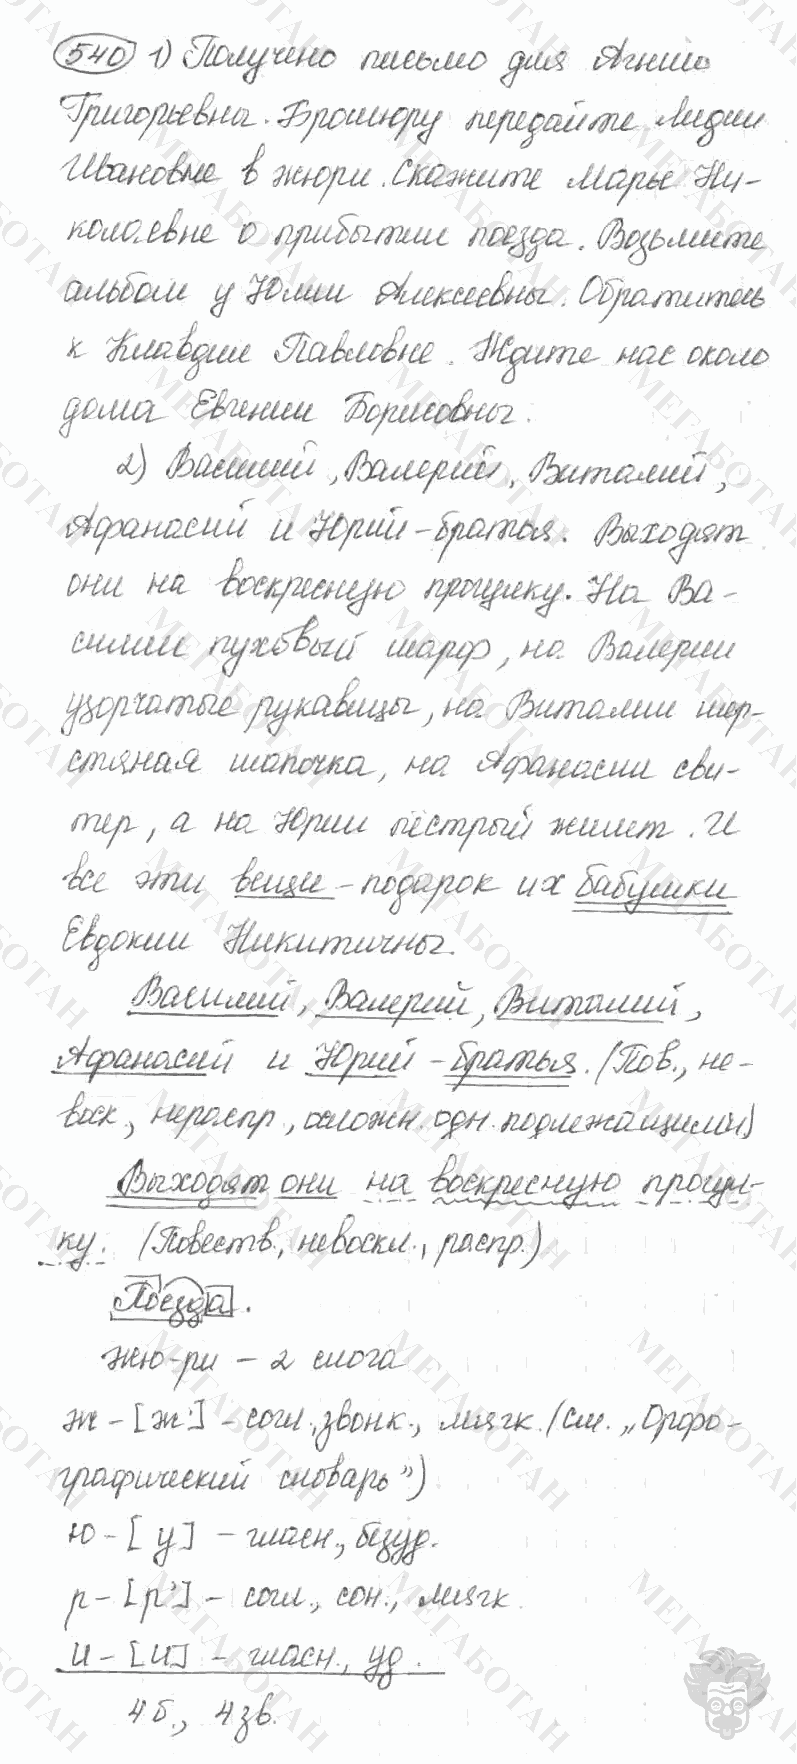 540 1) Получено письмо для Агнии
Григорьевны. Брошюру передайте Лидии
Ивановне в жюри. Скажите Марье Ни-
колаевне о прибытии поезда. Возьмите
альбом у Юлии Алексеевны. Обратитесь
к Клавдии Павловне. Ждите нас около
дома Евгении Борисовны.
2) Василий, Валерий, Виталий,
Афанасий и Юрий - братья. Выходят
они на воскресную прогулку. На Ва-
силии пуховый шарф, на Валерии
узорчатые рукавицы, на Виталии шер-
стяная шапочка, на Афанасии сви-
тер, а на Юрии пёстрый жилет. И
все эти вещи - подарок их бабушки
Евдокии Никитичны.
Василий, Валерий, Виталий,
Афанасий и Юрий - братья. (Пов., не-
воск., нераспр., осложн. одн. подлежащими)
Выходят они на воскресную прогул-
ку. (Повеств., невоскл., распр.)
Поезда.
жю-ри - 2 слога
ж - [ж'] - согл., звонк., мягк. (см. „Орфо-
графический словарь")
ю - [у] - гласн., безуд.
р - [р'] - согл., сон., мягк.
и - [и] - гласн., уд.
4 б., 4 зв.
МЕГАБОТАН